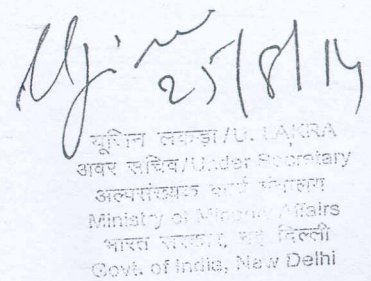 25/8/14
यूजिन लकड़ा/U. LAKRA
अवर सचिव/Under Secretary
अल्पसंख्यक कार्य मंत्रालय
Ministry of Minority Affairs
भारत सरकार, नई दिल्ली
Govt. of India, New Delhi